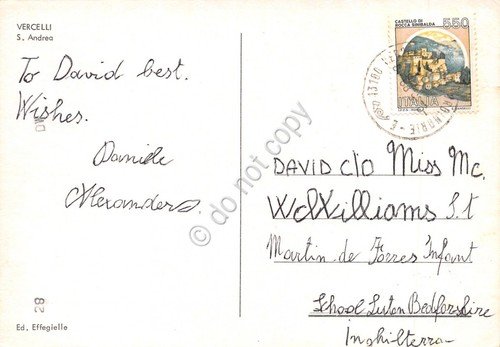 VERCELLI
S. Andrea
To David best.
Wishes.
Daniele
Alexanders.
82
Ed. Effegielle
CASTELLO DI
ROCCA SINIBALDA
550
ITALIA
13100
do not copy
DAVID C/O Miss Mc.
Williams S.t
Martin de Porres Infant
School Luton Bedforshire
Inghilterra